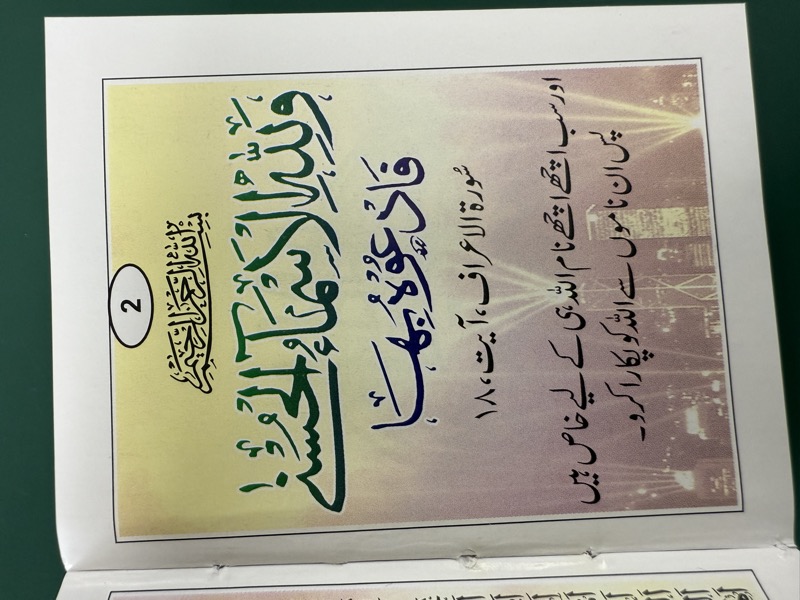 2
بِسْمِ اللهِ الرَّحْمٰنِ الرَّحِيْمِ
وَلِلّٰهِ الْاَسْمَآءُ الْحُسْنٰى
فَادْعُوْهُ بِهَا
سُورۃ الاعراف، آیت، ۱۸
اور سب اچھے اچھے نام اللہ ہی کے لیے خاص ہیں
پس ان ناموں سے اللہ کو پکارا کرو۔